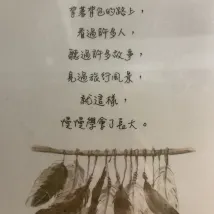 穿著背包的路上，
看過許多人，
聽過許多故事，
見過旅行風景，
就這樣，
慢慢學會了長大。